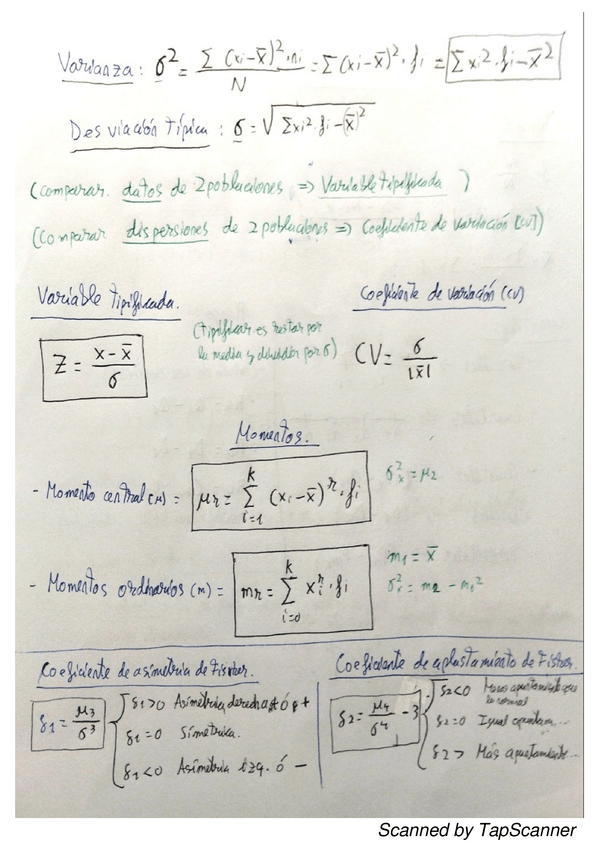 Varianza: σ² = Σ (xi-x̄)²·ni / N = Σ (xi-x̄)²·fi = Σ xi²·fi - x̄²
Desviación típica: σ = √(Σxi²·fi-(x̄)²)
(comparar datos de 2 poblaciones => Variable tipificada )
(Comparar dispersiones de 2 poblaciones => Coeficiente de variación [CV])
Variable tipificada.
Z = x-x̄ / σ
(tipificar es restar por
la media y dividir por σ)
Coeficiente de variación (CV)
CV = σ / |x̄|
Momentos.
- Momento central (μ) = μr = Σ (i=1, k) (xi-x̄)^r·fi
σx² = μ2
- Momentos ordinarios (m) = mr = Σ (i=0, k) xi^r·fi
m1 = x̄
σx² = m2 - m1²
Coeficiente de asimetría de Fisher.
g1 = μ3 / σ³
g1>0 Asimetría derecha ó +
g1=0 Simétrica.
g1<0 Asimetría izq. ó -
Coeficiente de aplastamiento de Fisher.
g2 = μ4 / σ⁴ - 3
g2<0 Menos apuntamiento que
la normal
g2=0 Igual apuntam...
g2 > Más apuntamiento...
Scanned by TapScanner